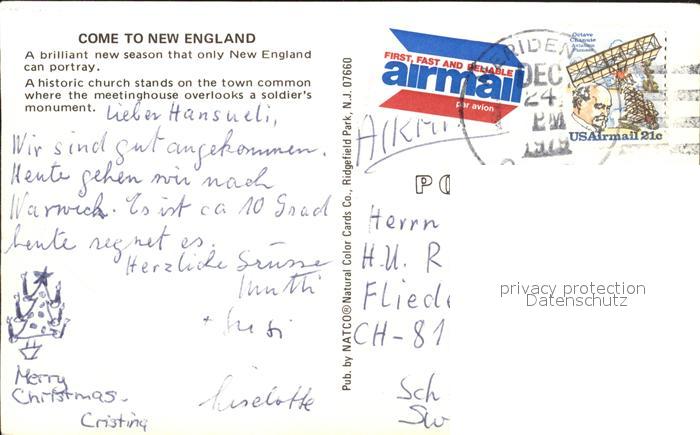 COME TO NEW ENGLAND
A brilliant new season that only New England
can portray.
A historic church stands on the town common
where the meetinghouse overlooks a soldier's
monument.
Lieber Hansueli,
Wir sind gut angekommen.
Heute gehen wir nach
Warwick. Es ist ca 10 Grad
heute regnet es.
Herzliche Grüsse
Mutti
+ Susi
Liselotte
Merry
Christmas-
Cristina
Pub. by NATCO® Natural Color Cards Co., Ridgefield Park, N.J. 07660
FIRST, FAST AND RELIABLE
airmail
par avion
RIDEN
DEC
24
PM
1979
Octave
Chanute
Aviation
Pioneer
USAirmail 21c
PO
Herrn
H.U. R
Fliede
CH-81
Sch
Sw
privacy protection
Datenschutz